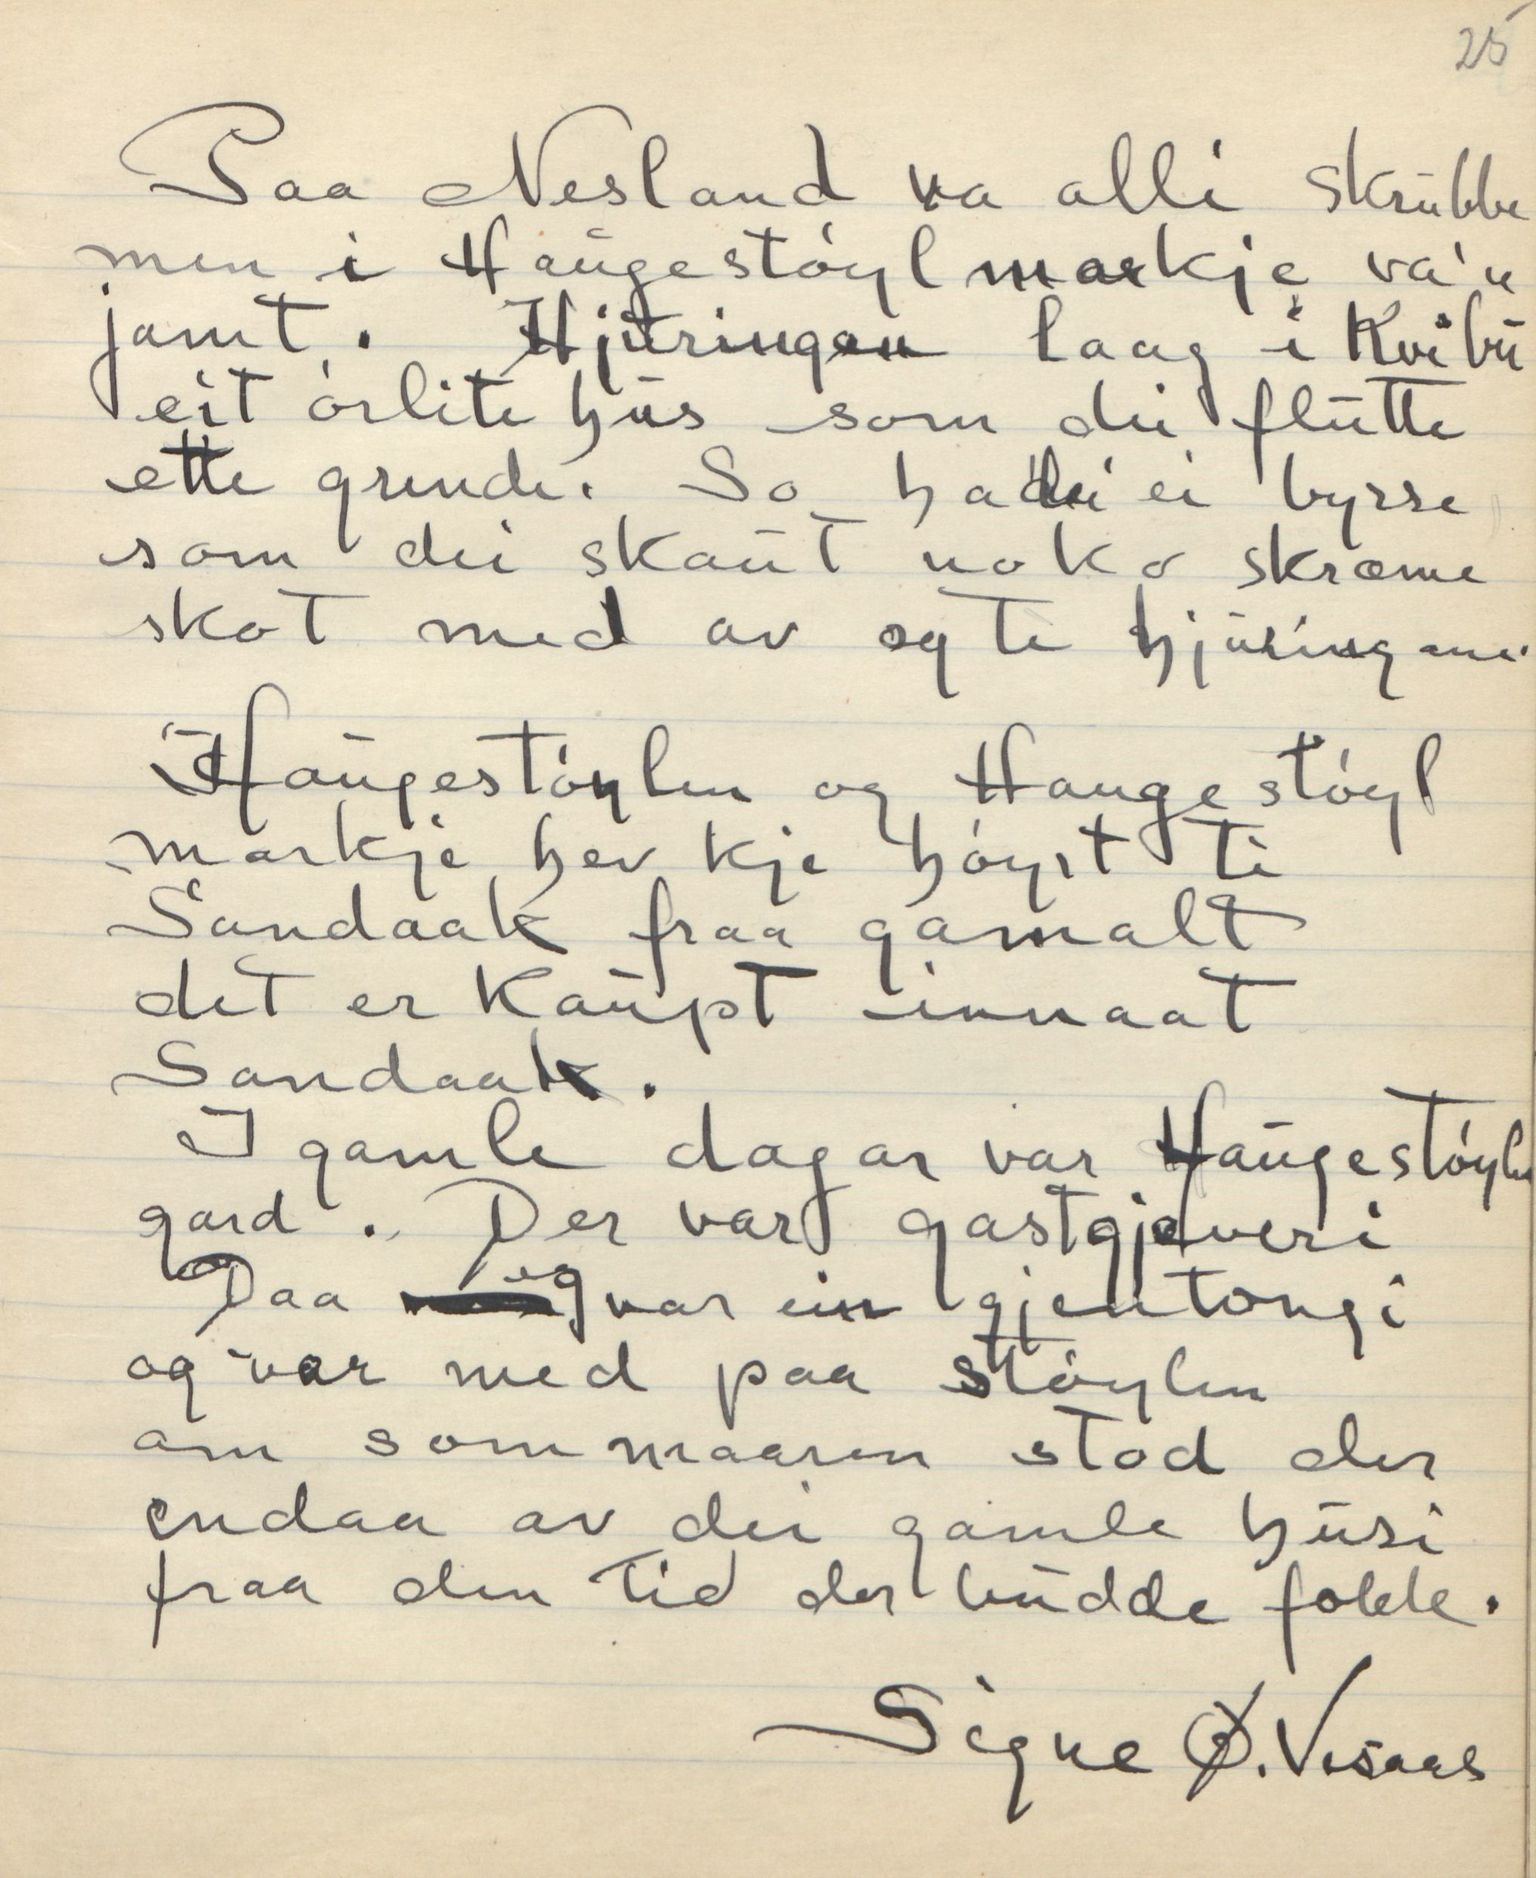 25
Paa Nesland va alli skrubbe
men i Haugestóyl markje va'n
jamt. Hjuringan laag i Kvibu
eit órlite hus som dei flutte
ette grinde. So ha dei ei byrse
som dei skaut noko skræme
skot med av og te hjuringane.
Haugestóylen og Haugestóyl
markje hev kje hóyrt ti
Sandaak fraa gamalt
det er kaupt innaat
Sandaak.
I gamle dagar var Haugestóylen
gard. Der var gastgjeveri
Daa eg var ein gjentongi
og var med paa stóylen
om sommaaren stod der
endaa av dei gamle husi
fraa den tid der budde folk.
Signe Ø. Vesaas